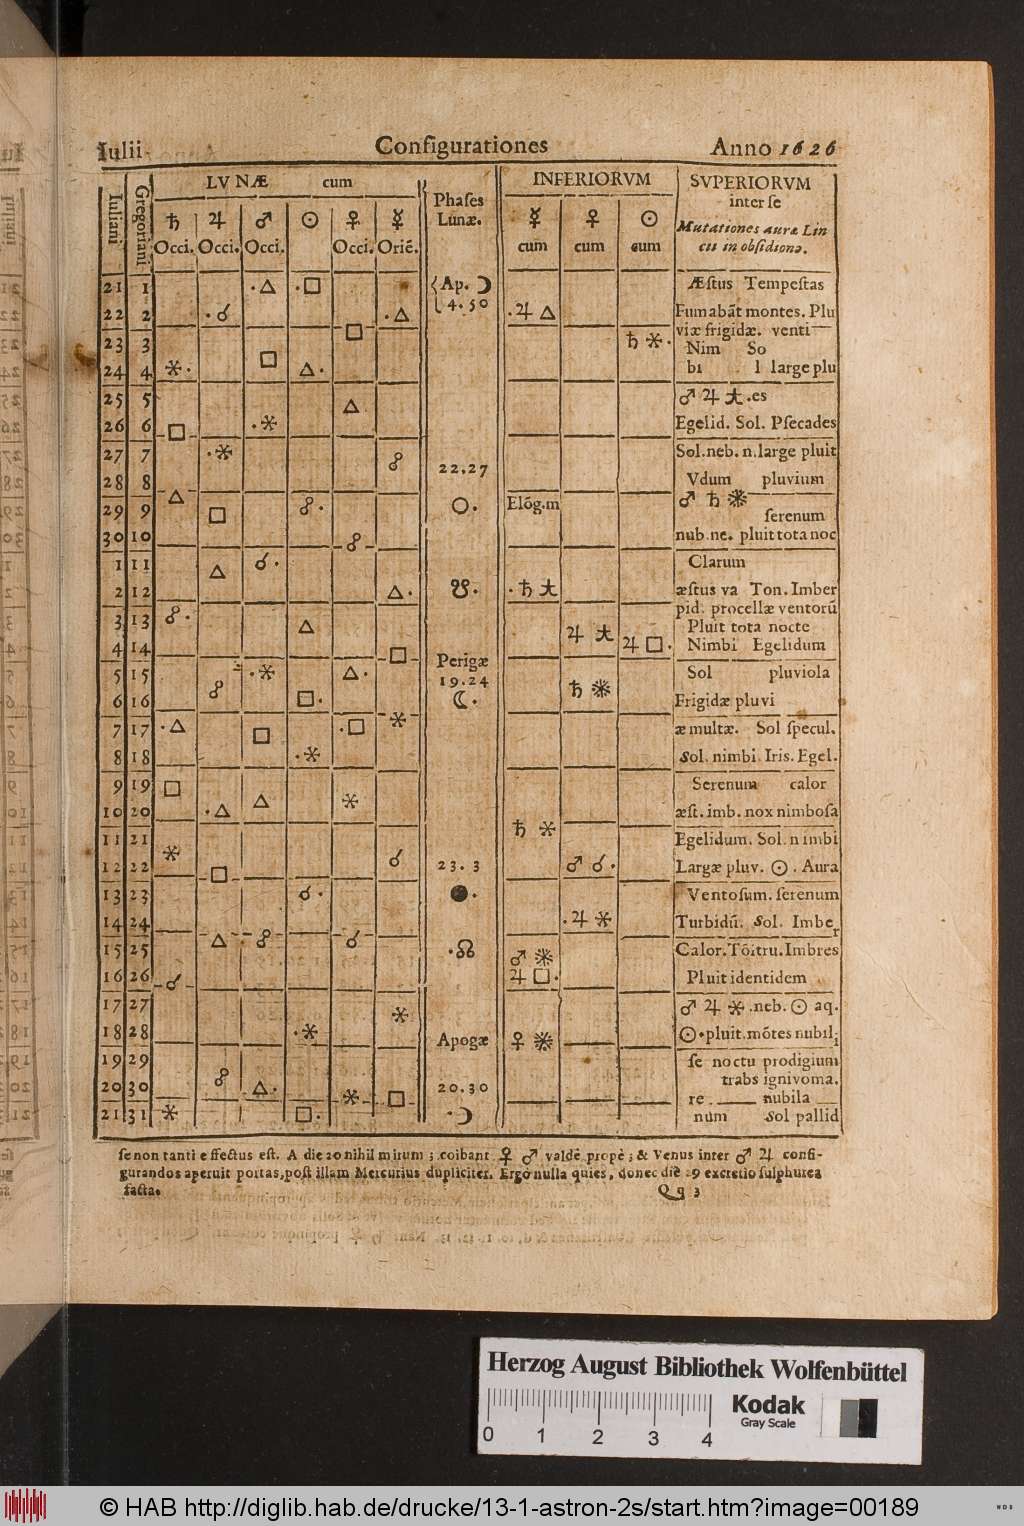 Iulii Configurationes Anno 1626
Iuliani Gregoriani LVNÆ cum Phases Lunæ. INFERIORVM SVPERIORVM inter se
♄ ♃ ♂ ☉ ♀ ☿ ☿ ♀ ☉ Mutationes auræ Lin
Occi. Occi. Occi. Occi. Oriẽ. cum cum cum cii in obsidione.
21 1 .△ .□ Ap. ☽ Æstus Tempestas
22 2 .☌ .△ 4.50 .♃ △ Fumabãt montes. Plu
□ viæ frigidæ. venti
23 3 □ ♄ ⚹. Nim So
24 4 ⚹. △. bi l large plu
25 5 △ ♂ ♃ 大.es
26 6 □ .⚹ Egelid. Sol. Psecades
27 7 .⚹ ☍ 22.27 Sol.neb.n.large pluit
28 8 Vdum pluvium
△ ♂ ♄ ⚹
29 9 □ ☍. ○. Elõg.m serenum
30 10 ☍ nub.ne. pluit tota noc
1 11 △ ☌. Clarum
2 12 △. ☋. .♄ 大 æstus va Ton. Imber
☍. pid. procellæ ventorũ
3 13 △ ♃ 大 Pluit tota nocte
4 14 □ Perigæ ♃ □. Nimbi Egelidum
5 15 .⚹ △. 19.24 Sol pluviola
6 16 ☍ □. ☾. ♄ ⚹ Frigidæ pluvi
7 17 .△ □ .□ ⚹ æ multæ. Sol specul.
8 18 .⚹ Sol. nimbi. Iris. Egel.
9 19 □ △ ⚹ Serenum calor
10 20 .△ æst. imb. nox nimbosa
11 21 ⚹ ♄ ⚹ Egelidum. Sol. nimbi
12 22 □ ☌ 23.3 ♂ ☌. Largæ pluv. ☉. Aura
13 23 ☌. ●. Ventosum. serenum
14 24 .♃ ⚹ Turbidũ. Sol. Imber
15 25 △ ☍ ☌ .☊ ♂ ⚹ Calor. Tõitru. Imbres
16 26 ☌ ♃ □. Pluit identidem
17 27 ⚹ ♂ ♃ ⚹.neb. ☉ aq.
18 28 .⚹ Apogæ ♀ ⚹ ☉.pluit.mõtes nubili
19 29 se noctu prodigium
20 30 ☍ △. ⚹ □ 20.30 trabs ignivoma.
re nubila
21 31 ⚹ □. .☽ num Sol pallid
se non tanti effectus est. A die 20 nihil mirum ; coibant ♀ ♂ valdè propè ; & Venus inter ♂ ♃ confi-
gurandos aperuit portas, post illam Mercurius dupliciter. Ergo nulla quies, donec diè 29 excretio sulphurea
facta. Qq 3
Herzog August Bibliothek Wolfenbüttel
0 1 2 3 4
Kodak
Gray Scale
© HAB http://diglib.hab.de/drucke/13-1-astron-2s/start.htm?image=00189